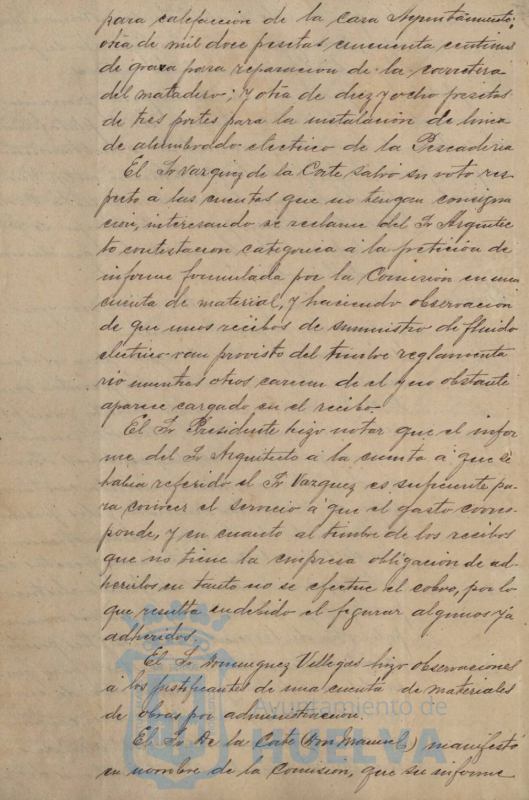 para calefaccion de la casa Ayuntamiento;
otra de mil doce pesetas cincuenta centimos
de grava para reparacion de la carretera
del matadero; y otra de diez y ocho pesetas
de tres portes para la instalacion de linea
de alumbrado electrico de la Pescaderia
El Sr Vazquez de la Corte salvó su voto res-
pecto á las cuentas que no tengan consigna
cion, interesando se reclame del Sr Arquitec
to contestacion categorica á la peticion de
informe formulada por la Comision en una
cuenta de material, y haciendo observacion
de que unos recibos de suministro de fluido
electrico van provisto del timbre reglamenta
rio mientras otros carecen de el y no obstante
aparece cargado en el recibo.
El Sr Presidente hizo notar que el infor
me del Sr Arquitecto á la cuenta á que se
habia referido el Sr Vazquez es suficiente pa-
ra conocer el servicio á que el gasto corres-
ponde, y en cuanto al timbre de los recibos
que no tiene la empresa obligacion de ad-
herirlos en tanto no se efectue el cobro, por lo
que resulta indebido el figurar algunos ya
adheridos.
El Sr Dominguez Villegas hizo observaciones
á los justificantes de una cuenta de materiales
de obras por administracion.
El Sr De la Corte (Don Manuel) manifestó
en nombre de la Comision, que su informe
Ayuntamiento de
HUELVA